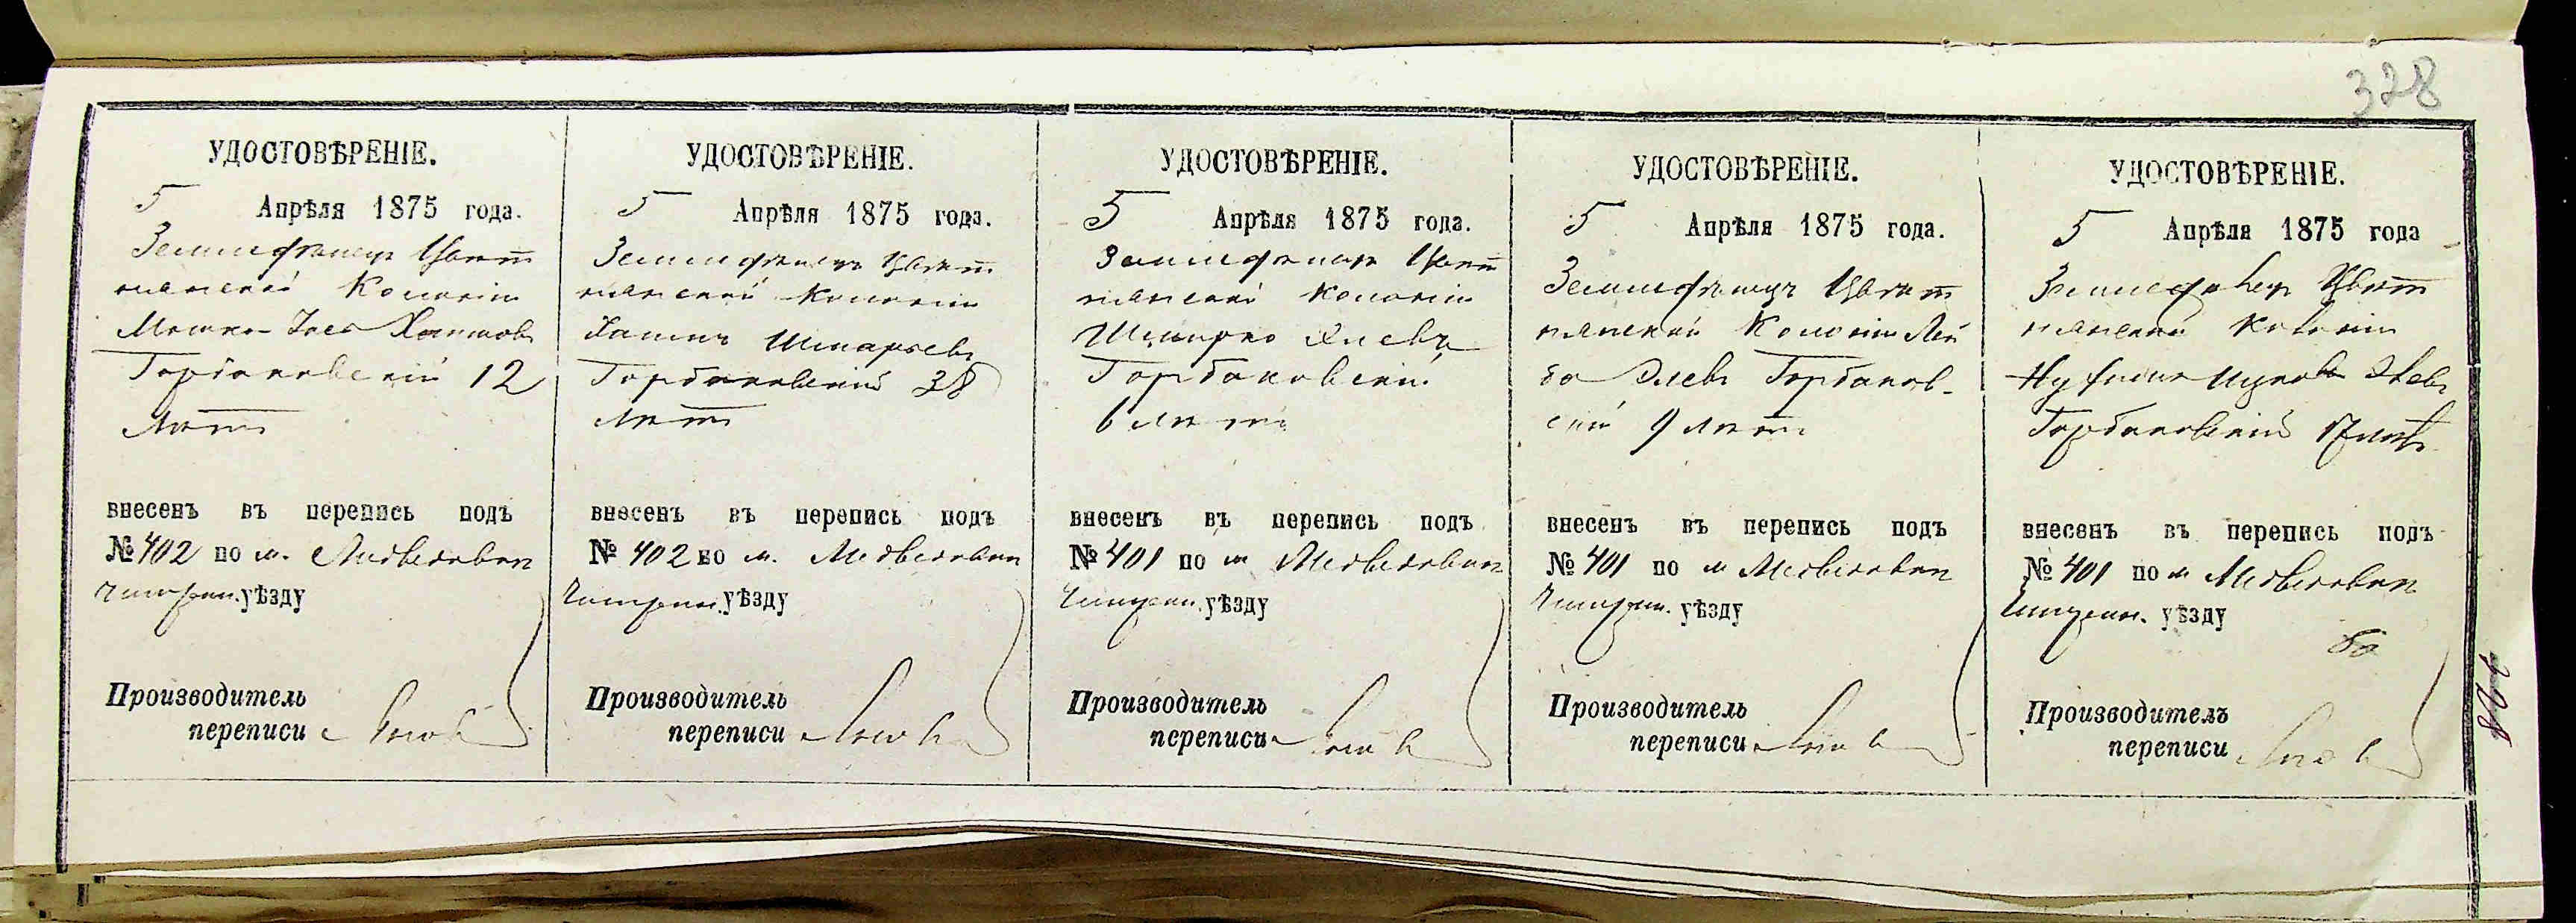 328
УДОСТОВѢРЕНІЕ.
5 Апрѣля 1875 года.
Земледѣлецъ Цвѣт
нянской Колоніи
Мошко- Хаимовъ
Горбаковскій 12
лѣтъ
внесенъ въ перепись подъ
№ 402 по м. Медведовкѣ
Чигрин. уѣзду
Производитель
переписи
УДОСТОВѢРЕНІЕ.
5 Апрѣля 1875 года.
Земледѣлецъ Цвѣт
нянской Колоніи
Хаимъ Шмарьевъ
Горбаковскій 38
лѣтъ
внесенъ въ перепись подъ
№ 402 по м. Медведовкѣ
Чигрин. уѣзду
Производитель
переписи
УДОСТОВѢРЕНІЕ.
5 Апрѣля 1875 года.
Земледѣлецъ Цвѣт
нянской Колоніи
Элевъ
Горбаковскій
6 лѣтъ
внесенъ въ перепись подъ
№ 401 по м Медведовкѣ
Чигрин. уѣзду
Производитель
переписи
УДОСТОВѢРЕНІЕ.
5 Апрѣля 1875 года.
Земледѣлецъ Цвѣт
нянской Колоніи Лей
ба Элевъ Горбаков-
скій 9 лѣтъ
внесенъ въ перепись подъ
№ 401 по м Медведовкѣ
Чигрин. уѣзду
Производитель
переписи
УДОСТОВѢРЕНІЕ.
5 Апрѣля 1875 года
Земледѣлецъ Цвѣт
нянской Колоніи
Элевъ
Горбаковскій 17 лѣтъ
внесенъ въ перепись подъ
№ 401 по м Медведовкѣ
Чигрин. уѣзду
Производитель
переписи